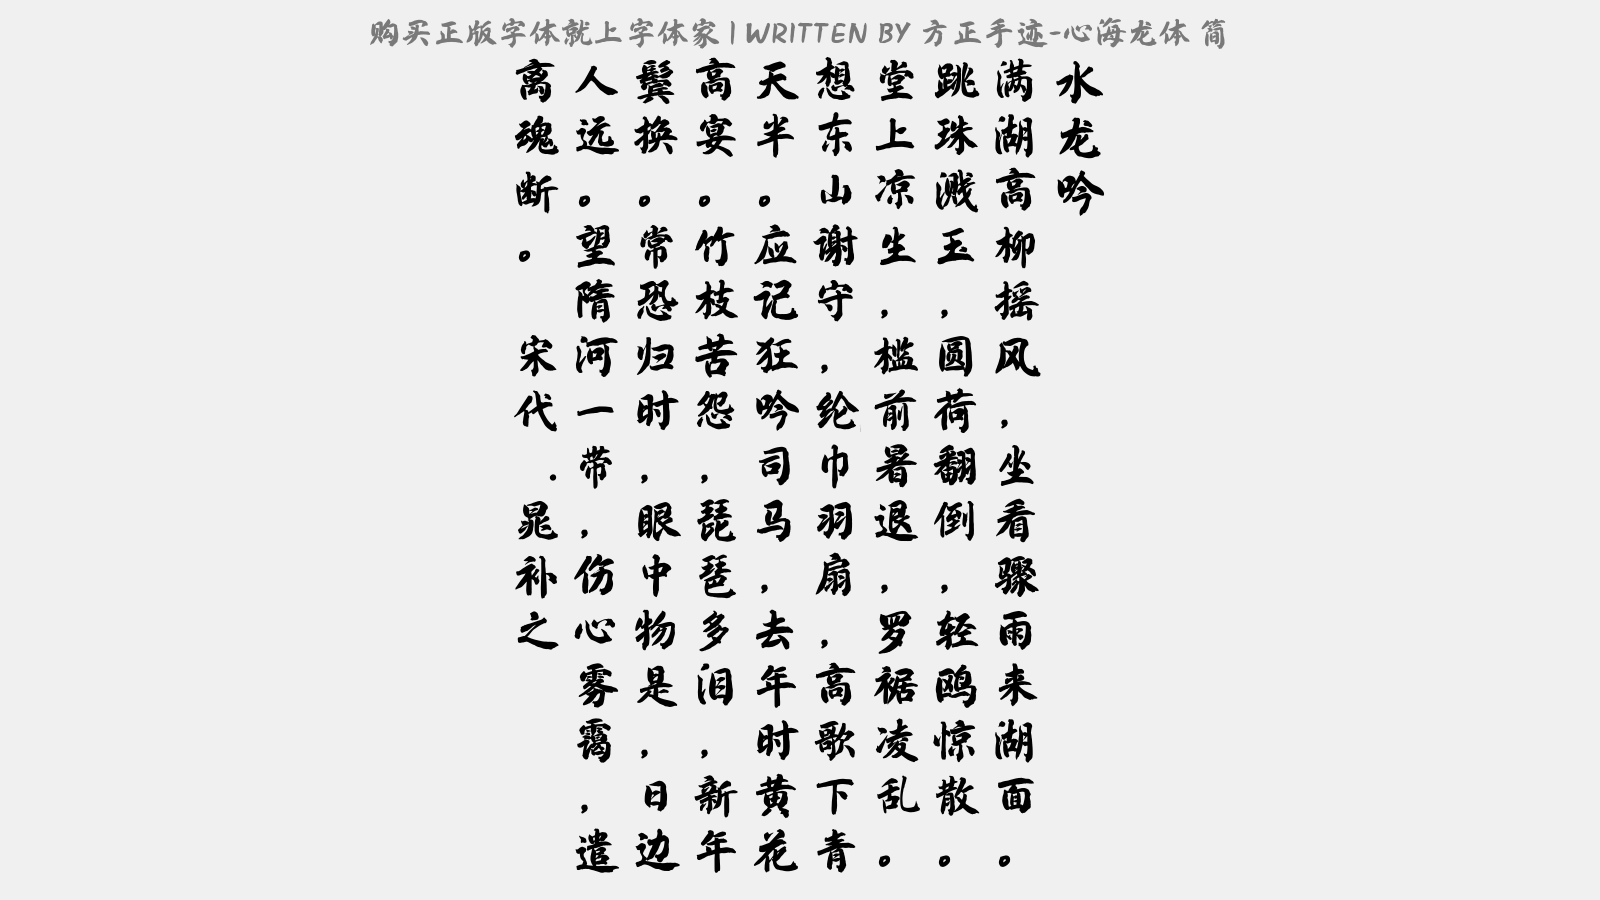 购买正版字体就上字体家 | WRITTEN BY 方正手迹-心海龙体 简
水龙吟
满湖高柳摇风，坐看骤雨来湖面。
跳珠溅玉，圆荷翻倒，轻鸥惊散。
堂上凉生，槛前暑退，罗裾凌乱。
想东山谢守，纶巾羽扇，高歌下青
天半。应记狂吟司马，去年时黄花
高宴。竹枝苦怨，琵琶多泪，新年
鬓换。常恐归时，眼中物是，日边
人远。望隋河一带，伤心雾霭，遣
离魂断。 宋代.晁补之